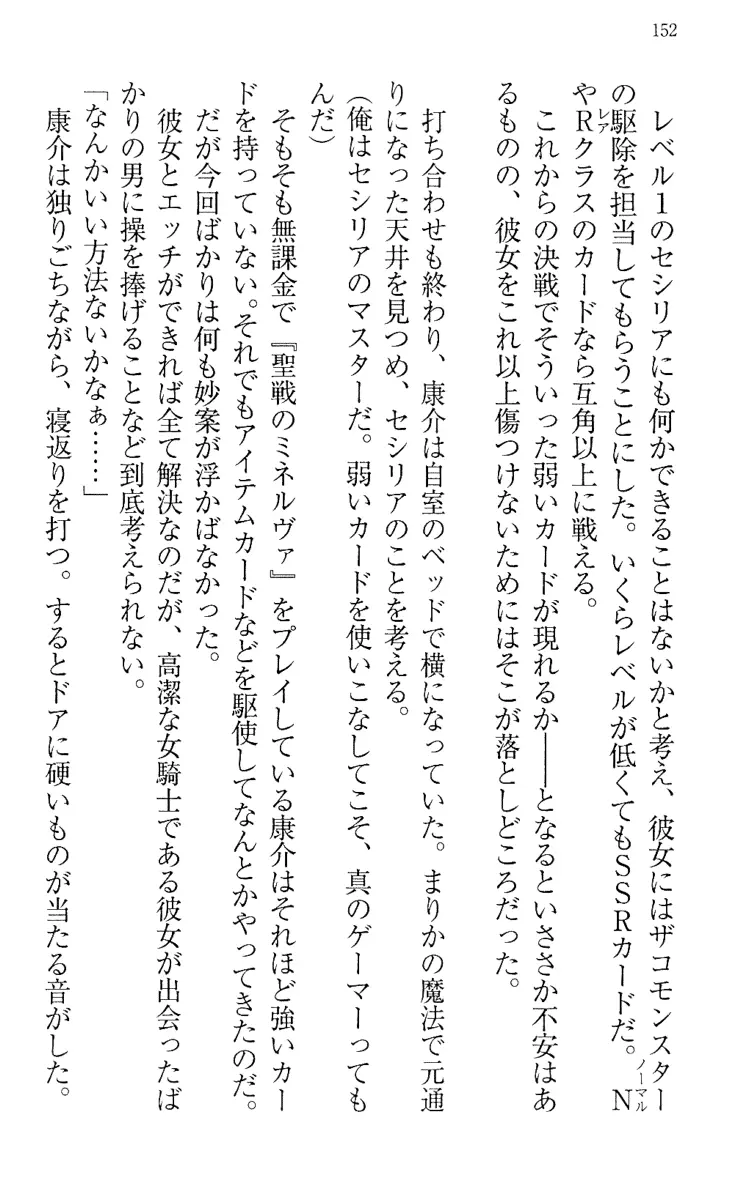 152
レベル1のセシリアにも何かできることはないかと考え、彼女にはザコモンスター
の駆除を担当してもらうことにした。いくらレベルが低くてもSSRカードだ。N
ノーマル
やRクラスのカードなら互角以上に戦える。
レア
これからの決戦でそういった弱いカードが現れるか――となるといささか不安はあ
るものの、彼女をこれ以上傷つけないためにはそこが落としどころだった。
打ち合わせも終わり、康介は自室のベッドで横になっていた。まりかの魔法で元通
りになった天井を見つめ、セシリアのことを考える。
(俺はセシリアのマスターだ。弱いカードを使いこなしてこそ、真のゲーマーっても
んだ)
そもそも無課金で『聖戦のミネルヴァ』をプレイしている康介はそれほど強いカー
ドを持っていない。それでもアイテムカードなどを駆使してなんとかやってきたのだ。
だが今回ばかりは何も妙案が浮かばなかった。
彼女とエッチができれば全て解決なのだが、高潔な女騎士である彼女が出会ったば
かりの男に操を捧げることなど到底考えられない。
「なんかいい方法ないかなぁ……」
康介は独りごちながら、寝返りを打つ。するとドアに硬いものが当たる音がした。